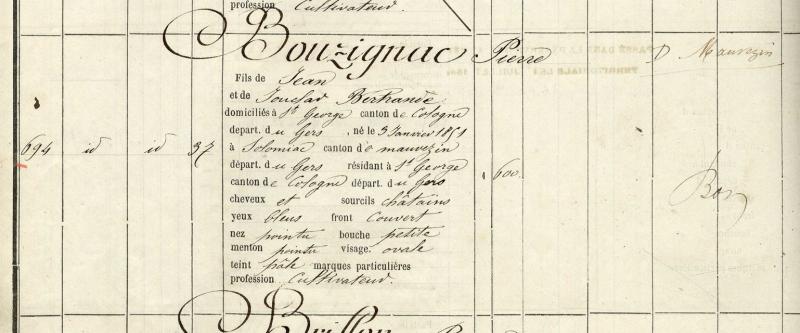 profession Cultivateur.
Bouzignac Pierre
Fils de Jean
et de Bertrande
domiciliés à St George canton de Cologne
depart. du Gers , né le 3 Janvier 1851
à Solomiac canton de mauvezin
départ. du Gers résidant à St George
canton de Cologne départ. du Gers
cheveux et sourcils châtains
yeux bleus front Couvert
nez pointu bouche petite
menton pointu visage. ovale
teint pâle marques particulières
profession Cultivateur.
694 id id 37
1 600
D Mauvezin
Bon